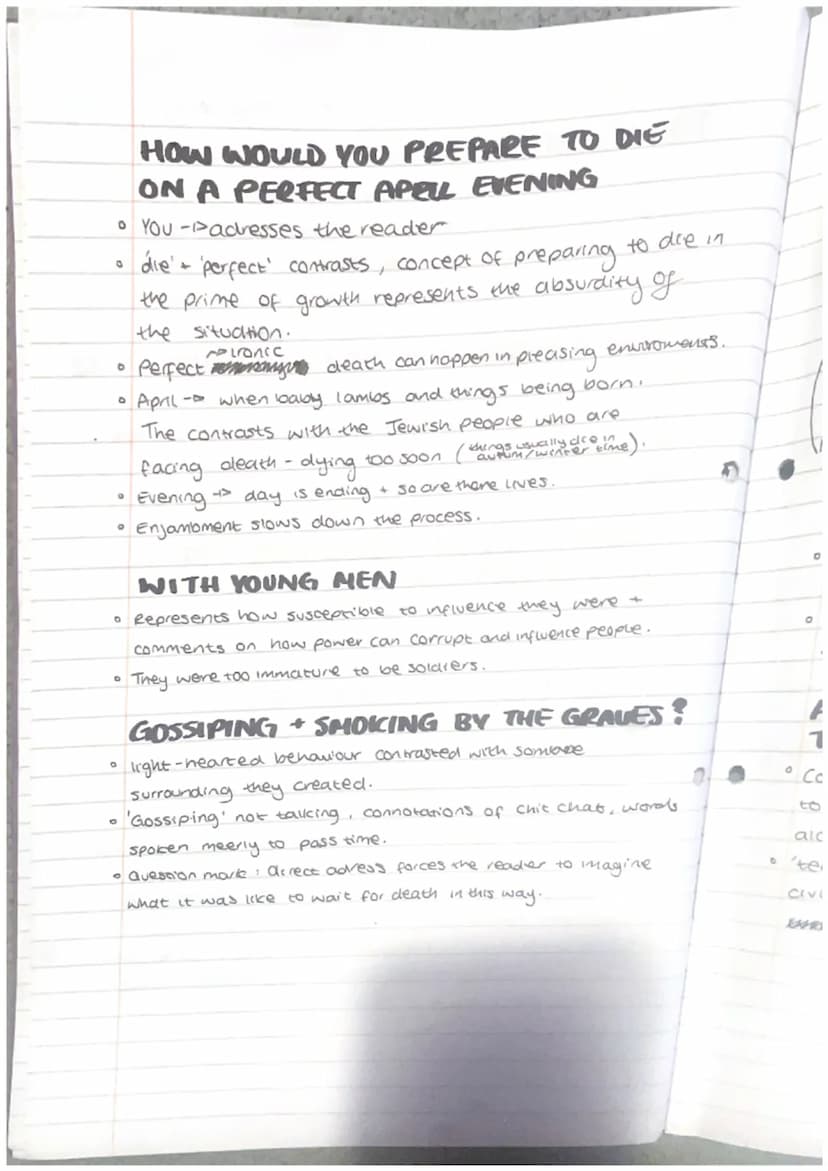 HOW WOULD YOU PREPARE TO DIE
ON A PERFECT APRIL EVENING
You -> adresses the reader
'die' + 'perfect' contrasts, concept of preparing to die in
the prime of growth represents the absurdity of
the situation.
~> ironic
Perfect death can happen in pleasing enviroments.
April -> when baby lambs and things being born.
The contrasts with the Jewish people who are
facing death - dying too soon (things usually die in
autum/winter time).
Evening -> day is ending + so are there lives.
Enjambment slows down the process.
WITH YOUNG MEN
Represents how susceptible to influence they were +
comments on how power can corrupt and influence people.
They were too immature to be soldiers.
GOSSIPING + SMOKING BY THE GRAVES?
light-hearted behaviour contrasted with
surrounding they created.
'Gossiping' not talking, connotations of chit chat, words
spoken meerly to pass time.
Question mark: direct adress forces the reader to imagine
what it was like to wait for death in this way.
Co
to
'te
civi